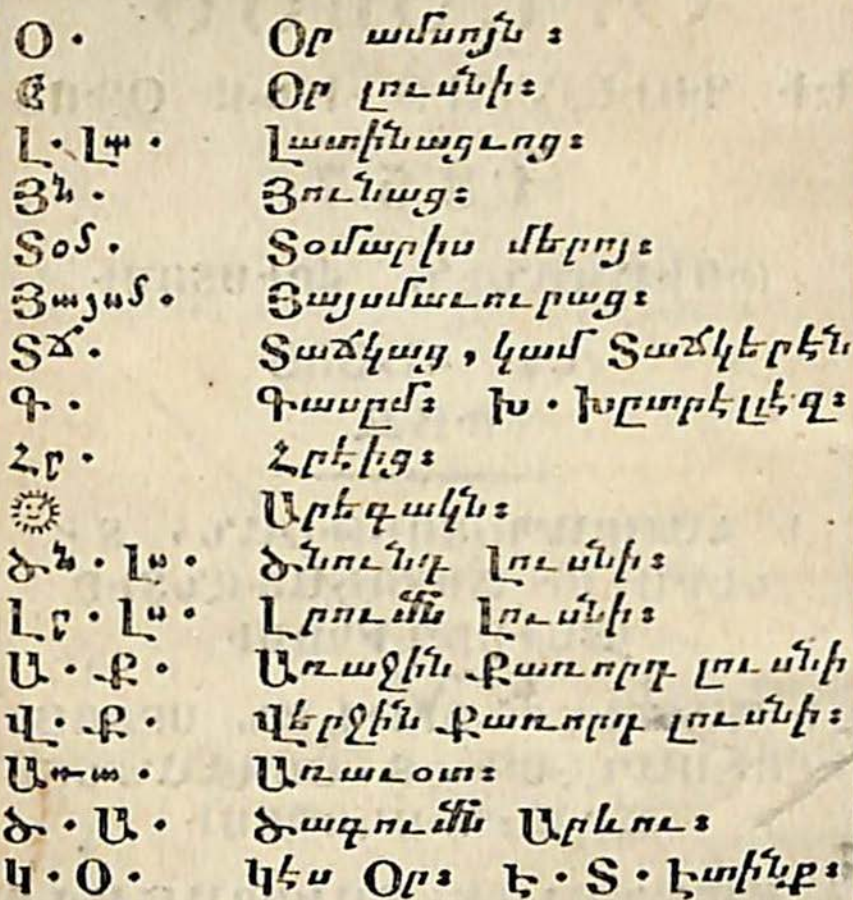 Օ · Օր ամսոյն ։
Օր լուսնի։
Լ · Լտ · Լատինացւոց ։
Յն · Յունաց։
Տօմ · Տօմարիս մերոյ։
Յայսմ · Յայսմաւուրաց։
Տճ · Տաճկաց , կամ Տաճկերէն
Գ · Գասըմ։ Խ · Խըտրէլլէզ։
Հր · Հրէից։
Արեգակն։
Ծն · Լս · Ծնունդ Լուսնի։
Լր · Լս · Լրումն Լուսնի։
Ա · Ք · Առաջին Քառորդ լուսնի
Վ · Ք · Վերջին Քառորդ լուսնի։
Առտ · Առաւօտ։
Ծ · Ա · Ծագումն Արևու։
Կ · Օ · Կէս Օր։ Է · Տ · Էտինք։